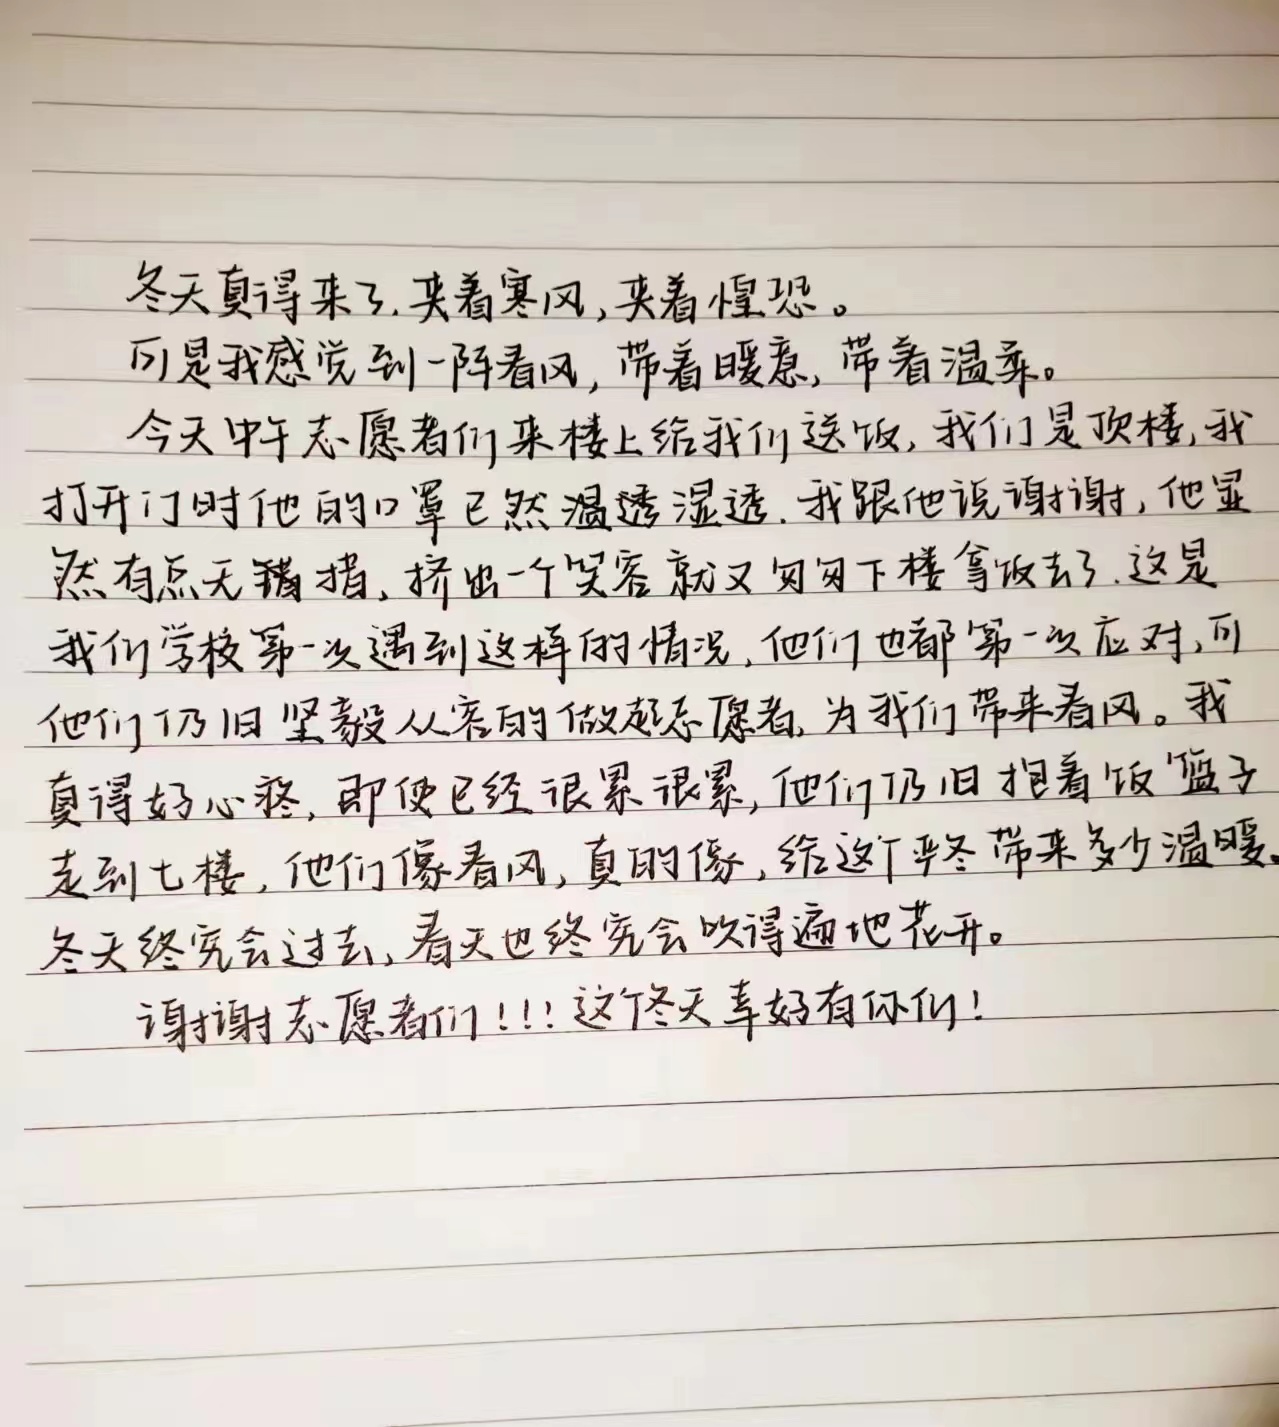 冬天真得来了.夹着寒风,夹着惶恐。
可是我感觉到一阵春风,带着暖意,带着温柔。
今天中午志愿者们来楼上给我们送饭,我们是顶楼,我
打开门时他的口罩已然温透湿透.我跟他说谢谢,他显
然有点无措措,挤出一个笑容就又匆匆下楼拿饭去了.这是
我们学校第一次遇到这样的情况,他们也都第一次应对,可
他们仍旧坚毅从容的做起志愿者,为我们带来春风。我
真得好心疼,即使已经很累很累,他们仍旧抱着饭篮子
走到七楼,他们像春风,真的像,给这个严冬带来多少温暖.
冬天终究会过去,春天也终究会吹得遍地花开。
谢谢志愿者们!!!这个冬天幸好有你们!